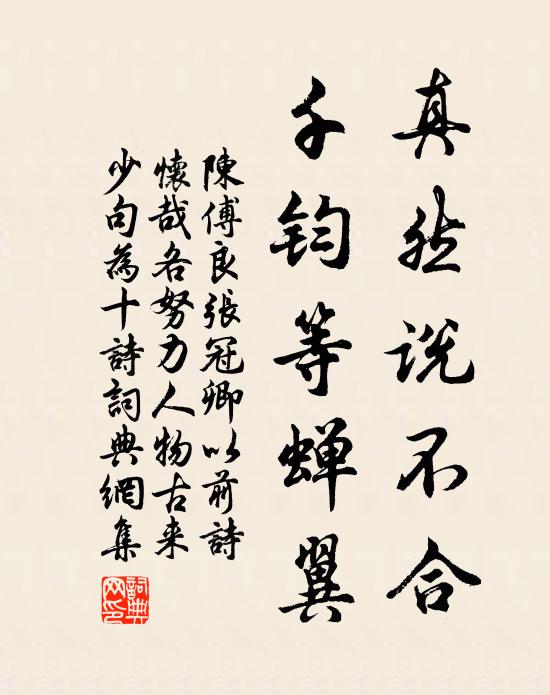 真然说不合
千钧等蝉翼
陳傅良張冠卿以前詩
懷哉各努力人物古来
少句為十詩詞典網集